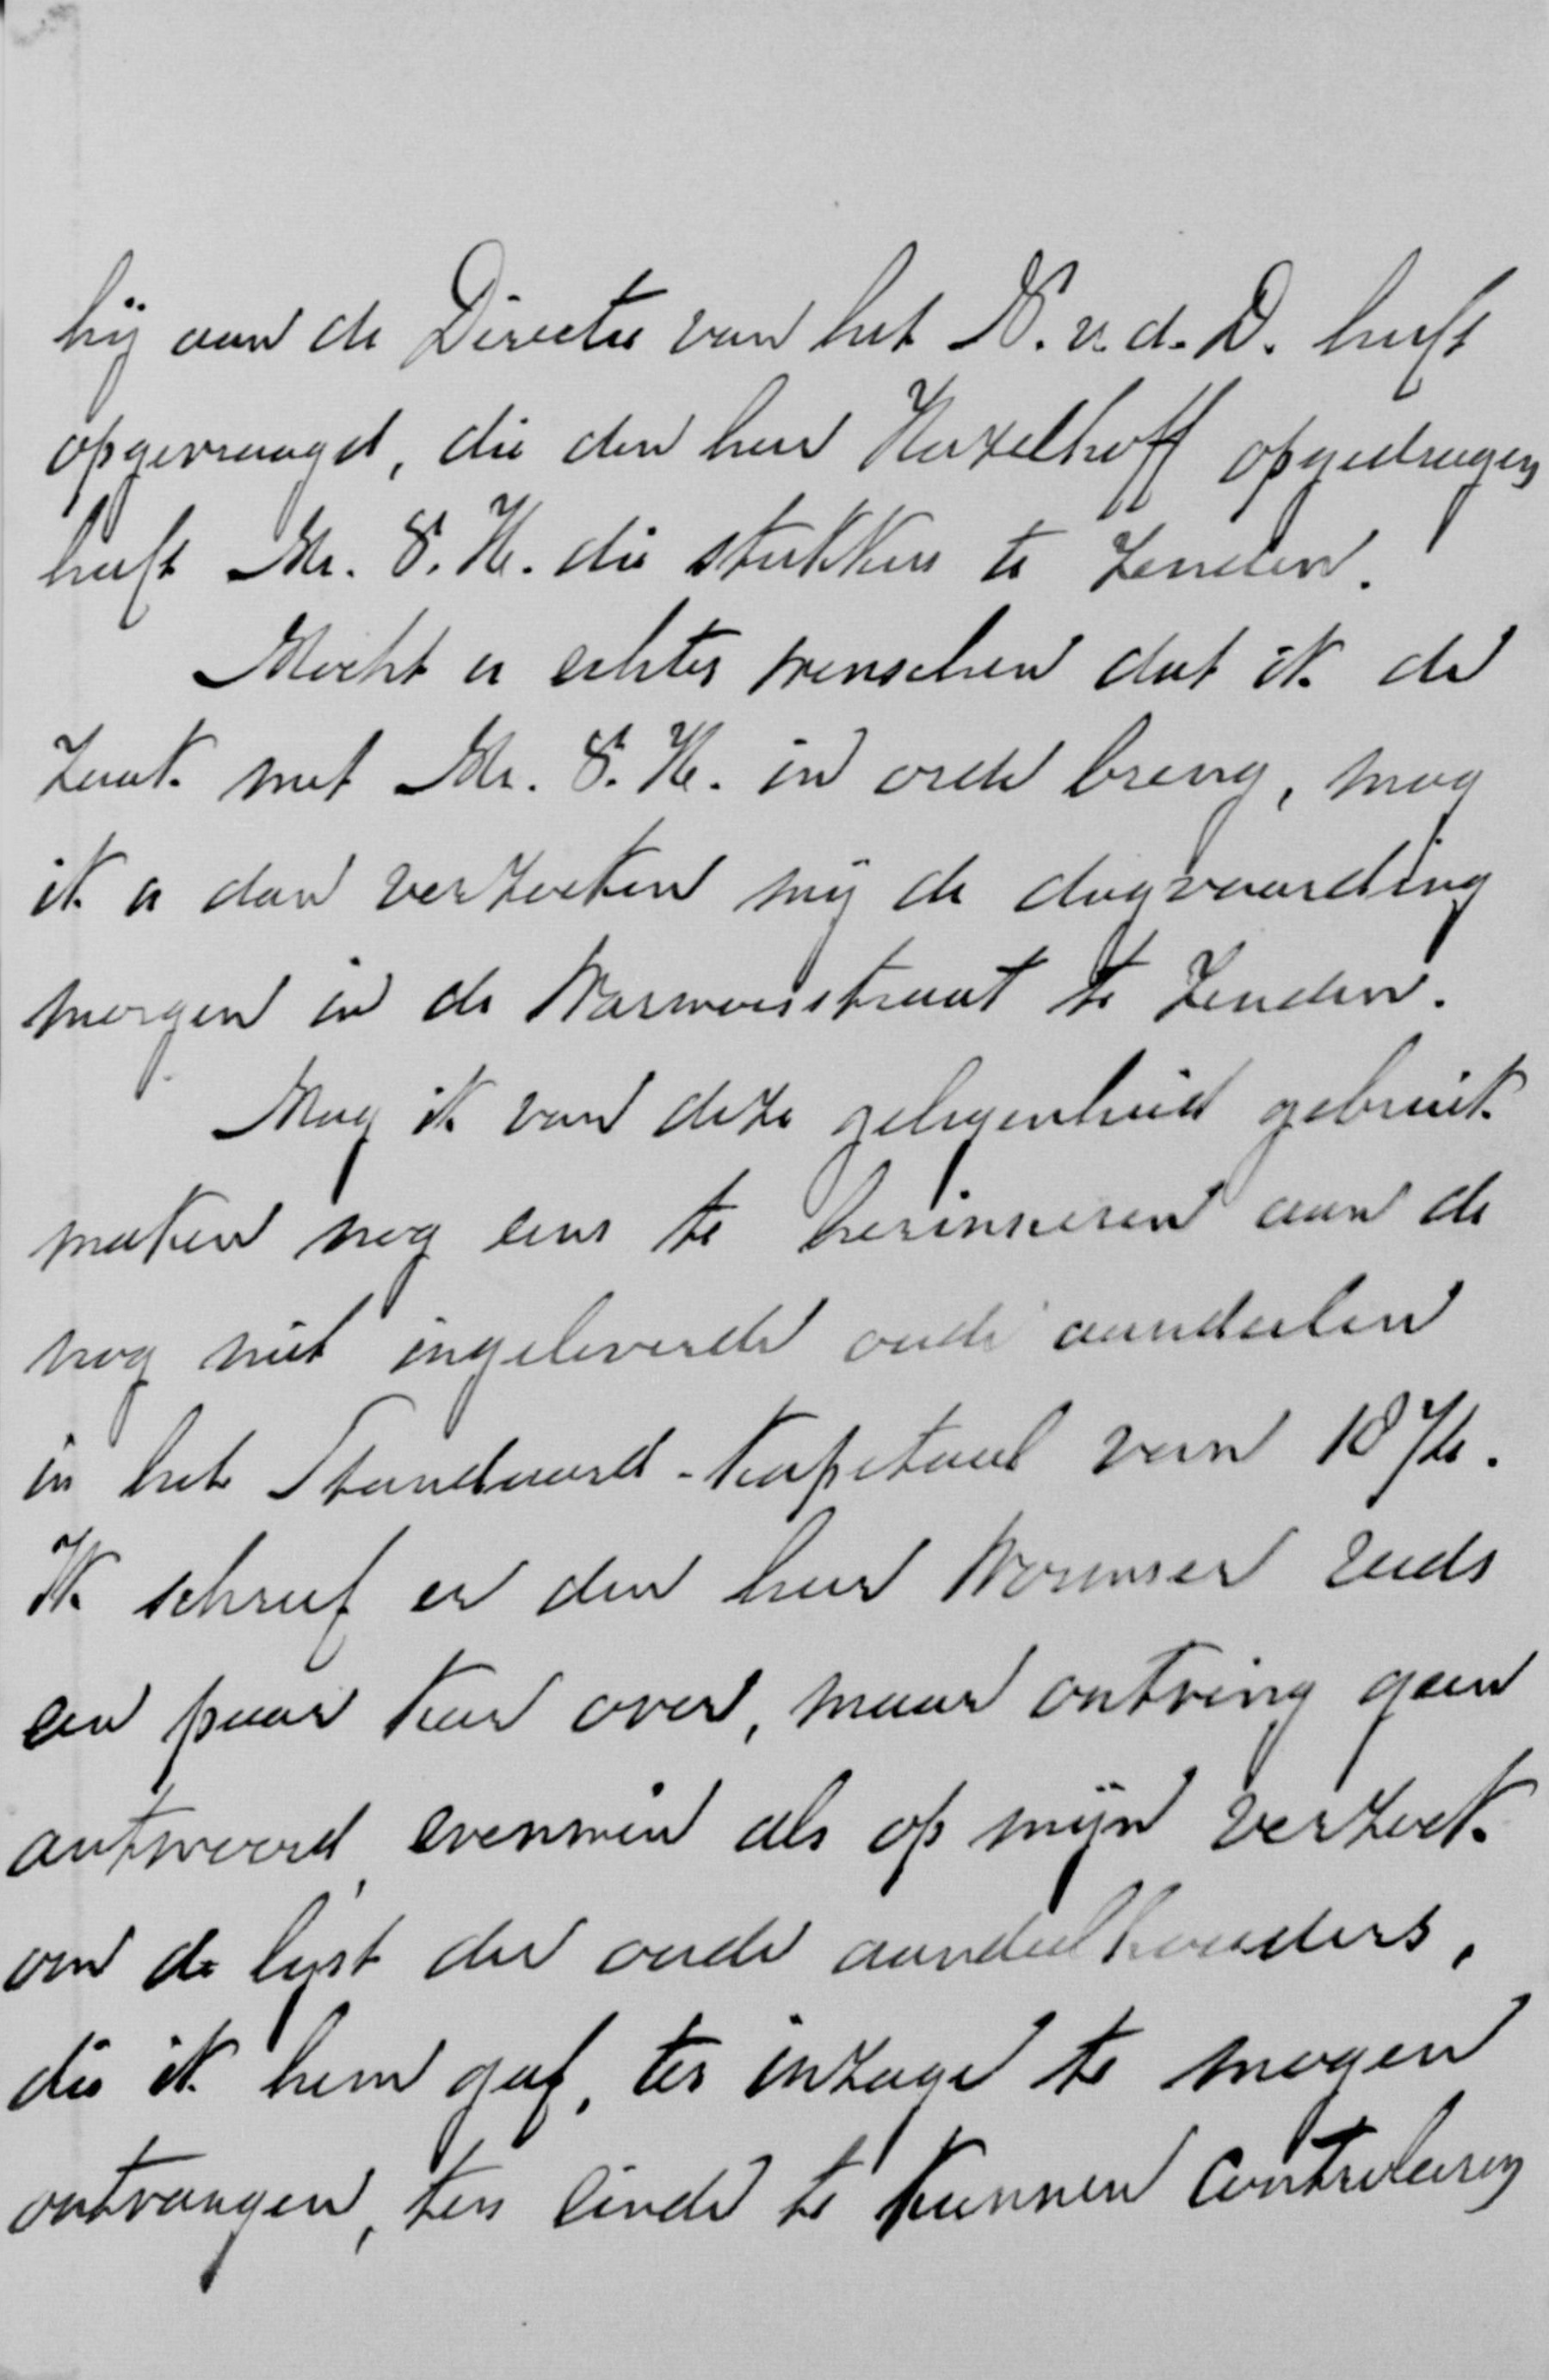 hij aan de Directie van het N. v. d. D. heeft
opgevraagd, die den heer Hazelhoff opgedragen
heeft Mr. S. H. die stukken te zenden.
Mocht u echter wenschen dat ik de
zaak met Mr. S. H. in orde breng, mag
ik u dan verzoeken mij de dagvaarding
morgen in de Warmoesstraat te zenden.
Mag ik van deze gelegenheid gebruik
maken nog eens te herinneren aan de
nog niet ingeleverde oude aandeelen
in het Standaard-Kapitaal van
Ik schreef er den heer Wormser reeds
een paar keer over, maar ontving geen
antwoord, evenmin als op mijn verzoek
om de lijst der oude aandeelhouders,
die ik hem gaf, ter inzage te mogen
ontvangen, ten einde te kunnen controleeren